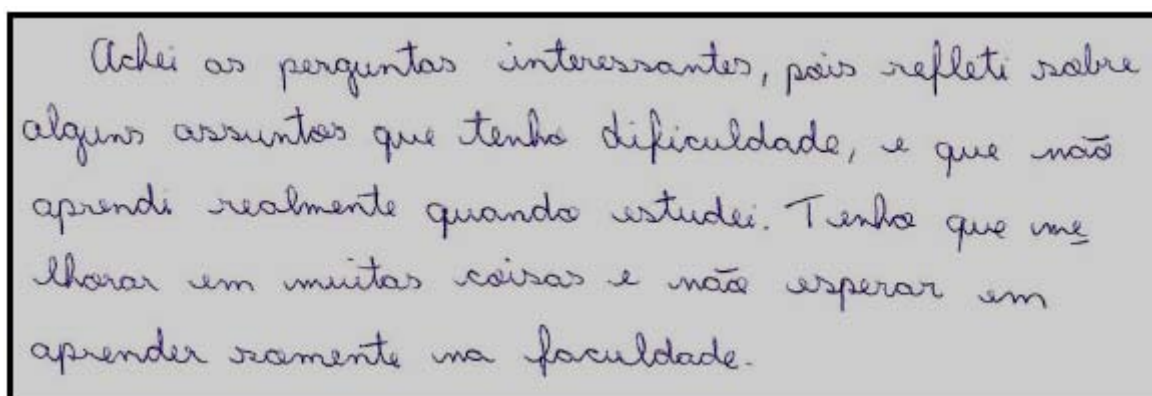 Achei as perguntas interessantes, pois refleti sobre
alguns assuntos que tenho dificuldade, e que não
aprendi realmente quando estudei. Tenho que me
lhorar em muitas coisas e não esperar em
aprender somente na faculdade.